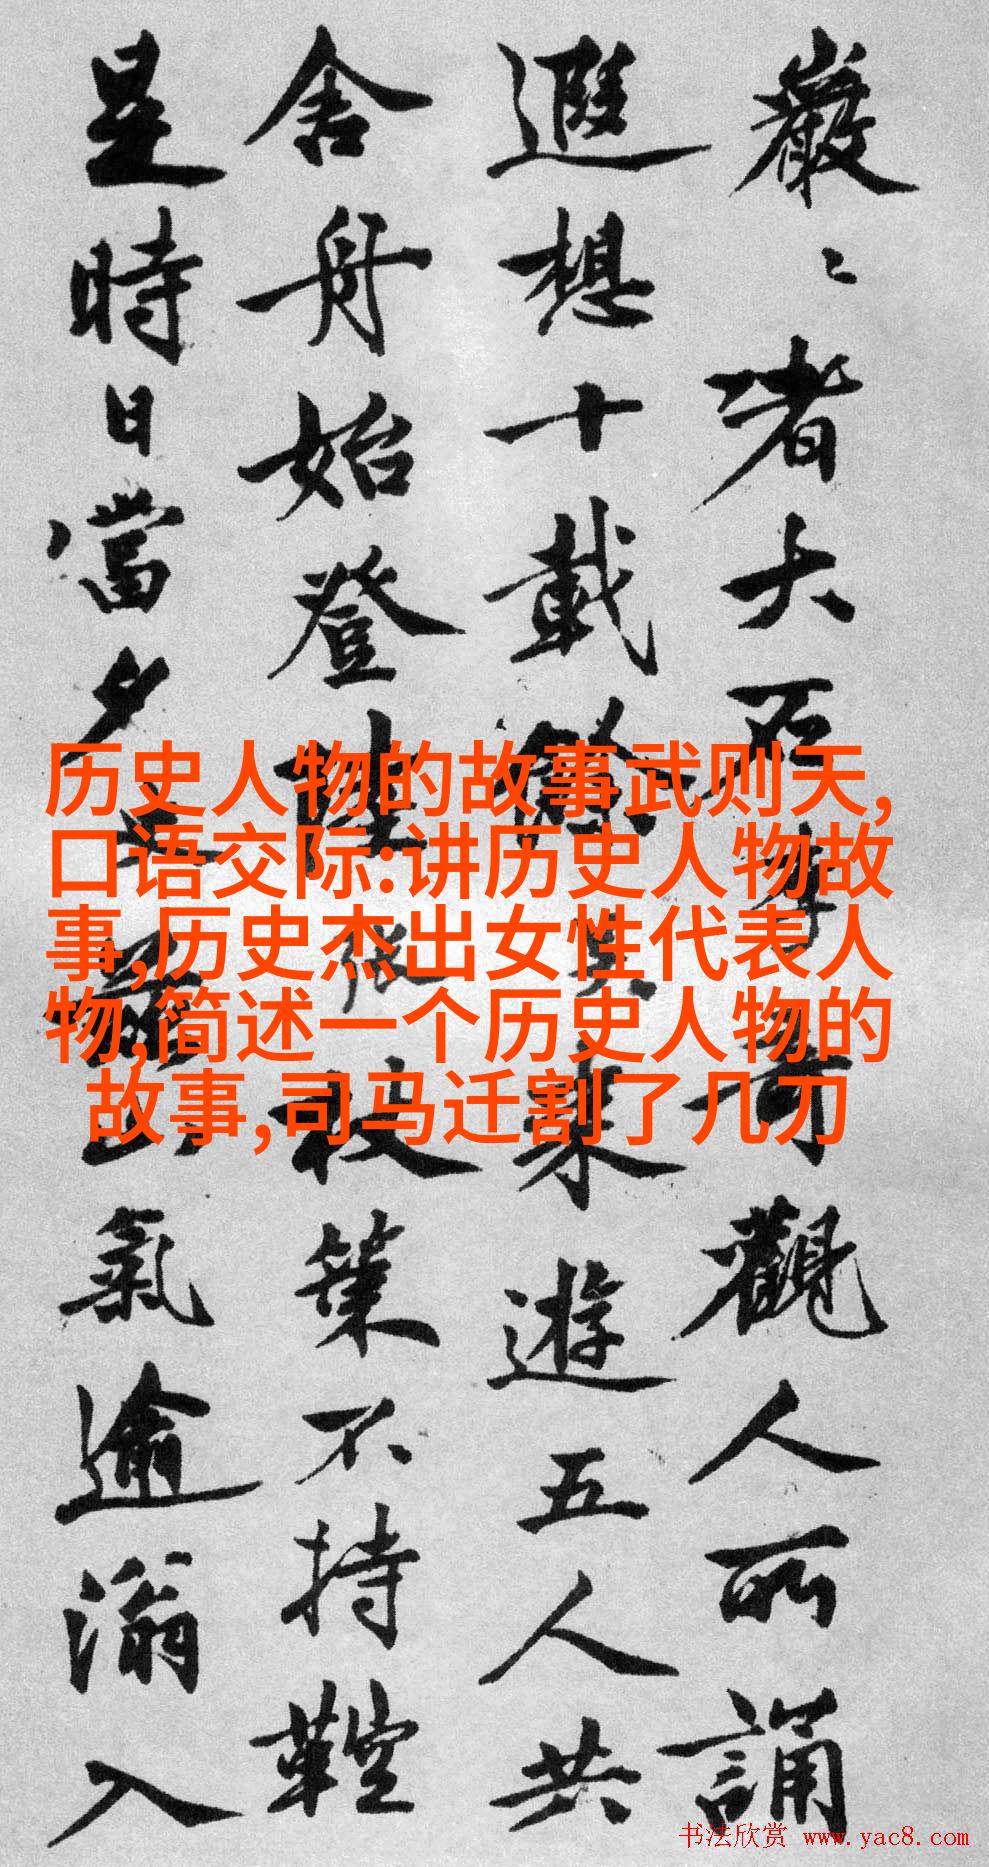 巖〻者大石奇觀人所誦
遐想十載餘遊五人共
舍舟始登陸杖策不持鞚
是時日當夕氣逾滃入
历史人物的故事武则天,
口语交际:讲历史人物故
事,历史杰出女性代表人
物,简述一个历史人物的
故事,司马迁割了几刀
书法欣赏 www.yac8.com